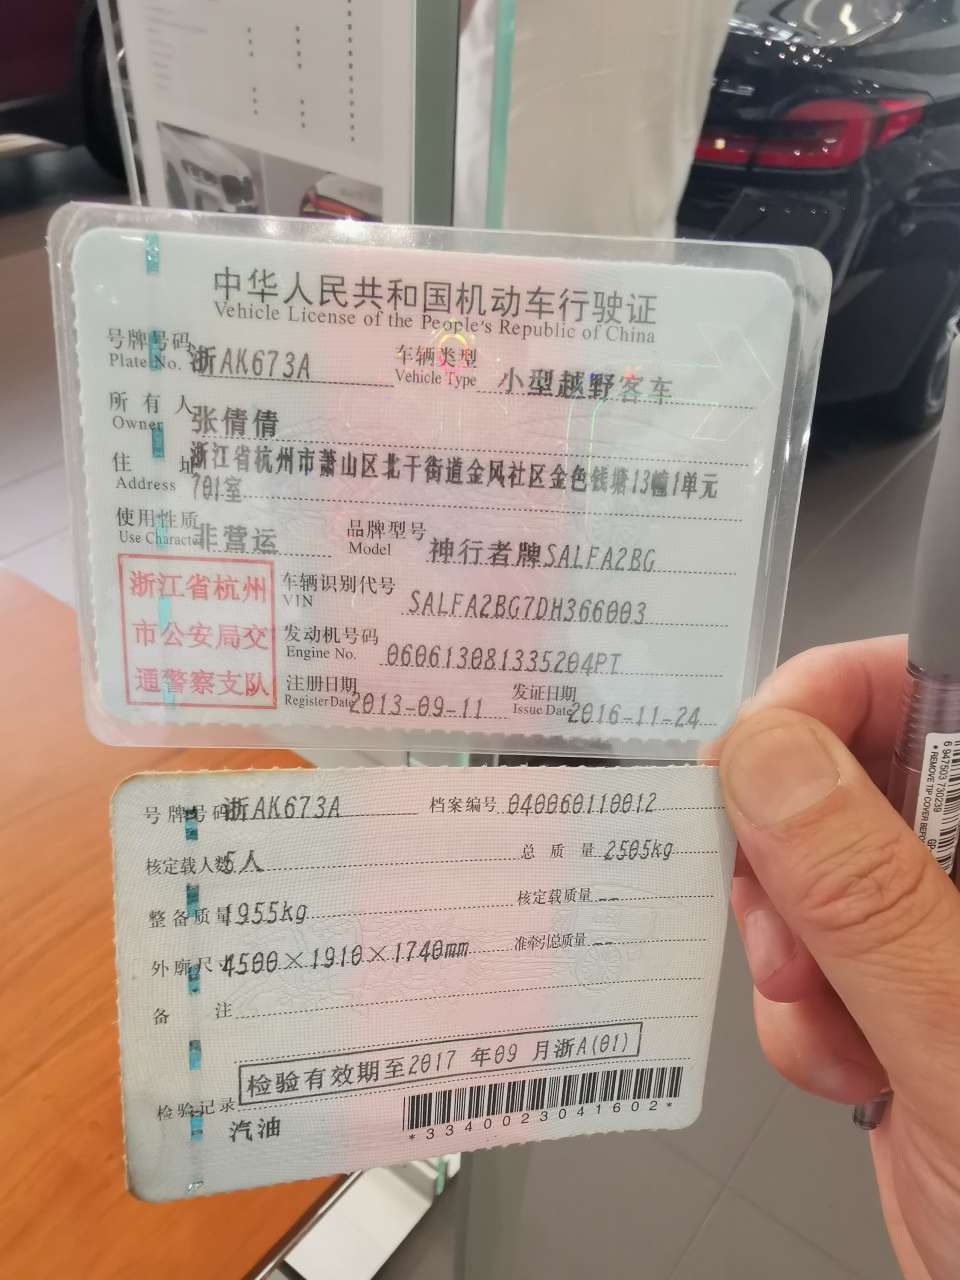 中华人民共和国机动车行驶证
Vehicle License of the People's Republic of China
号牌号码 浙AK673A 车辆类型 小型越野客车
Plate No. Vehicle Type
所有人 张倩倩
Owner
住址 浙江省杭州市萧山区北干街道金凤社区金色钱塘13幢1单元
Address 701室
使用性质 非营运 品牌型号 神行者牌SALFA2BG
Use Character Model
浙江省杭州
市公安局交
通警察支队
车辆识别代号 SALFA2BG7DH366003
VIN
发动机号码 060613081335204PT
Engine No.
注册日期 2013-09-11 发证日期 2016-11-24
Register Date Issue Date
号牌号码 浙AK673A 档案编号 040060110012
核定载人数 5人 总质量 2505kg
整备质量 1955kg 核定载质量 --
外廓尺寸 4500×1910×1740mm 准牵引总质量 --
备注
检验有效期至2017年09月浙A(01)
检验记录
汽油
*3340023041602*
6 947503 730239
* REMOVE TIP COVER BEFO
GP-